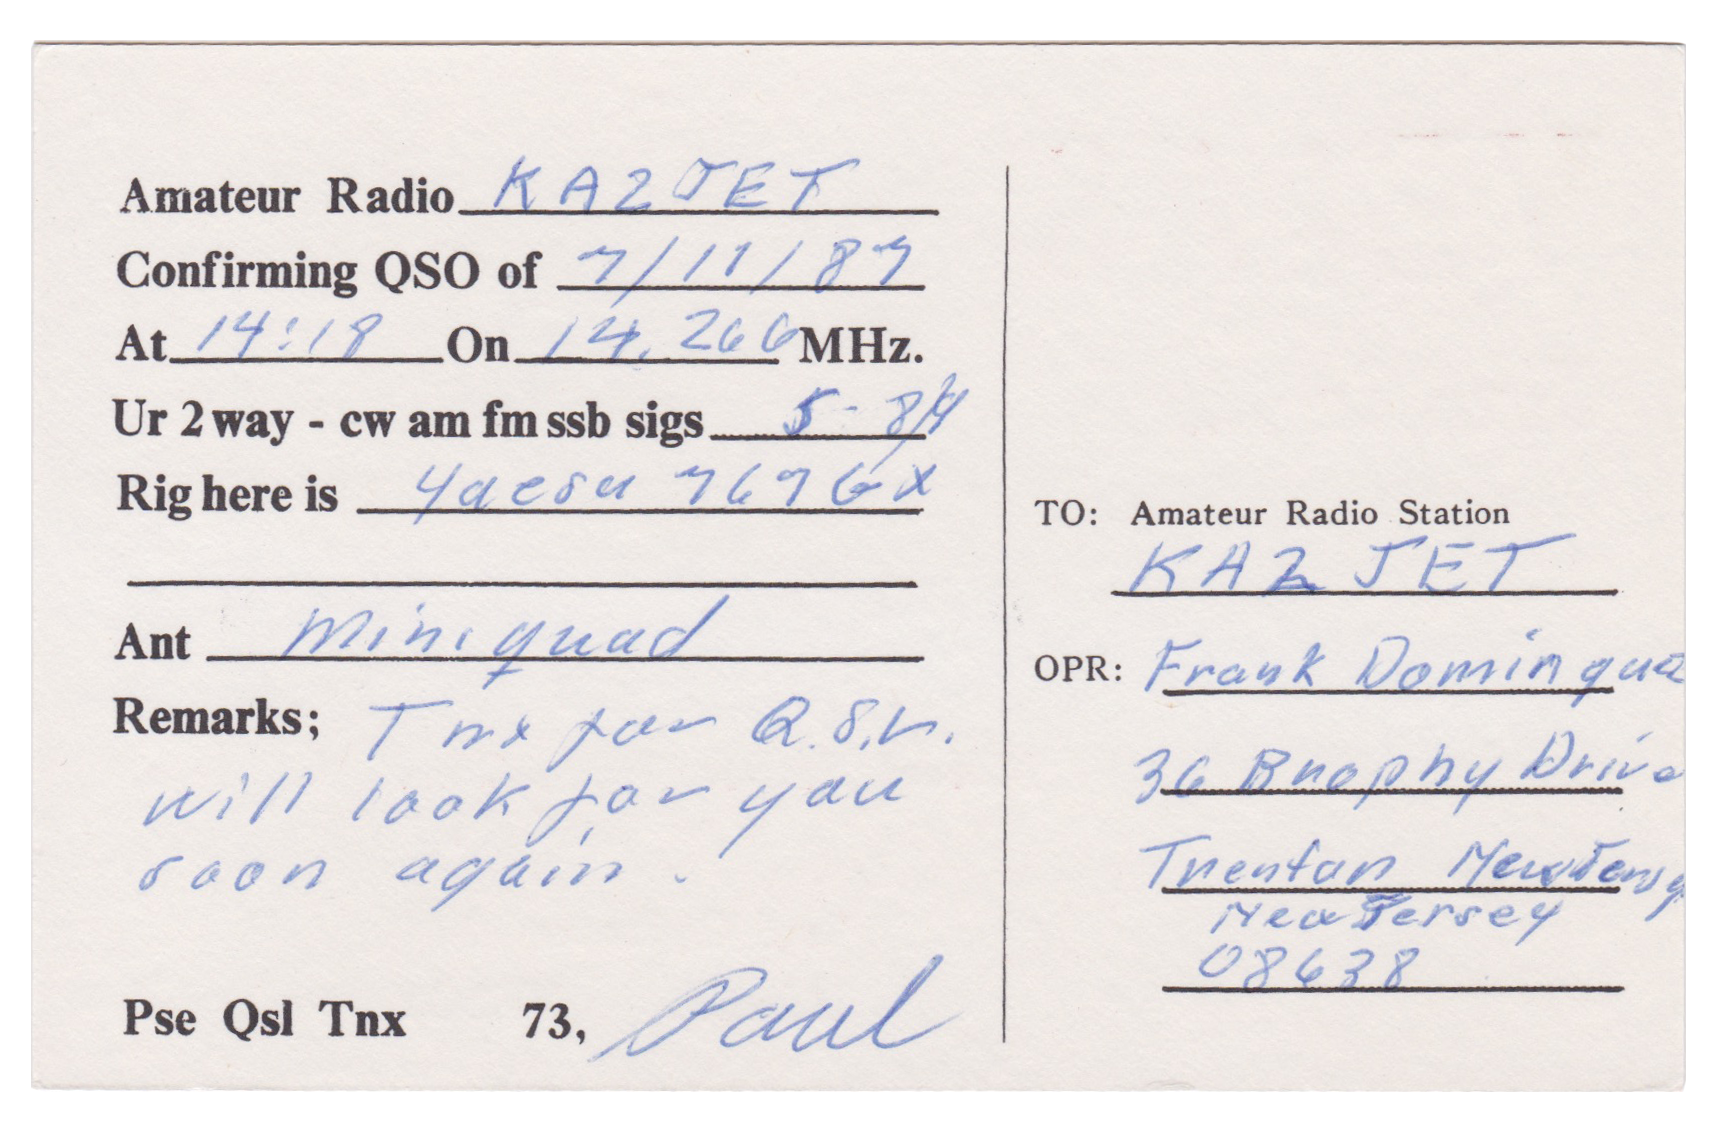 Amateur Radio KA2JET
Confirming QSO of 7/11/87
At 14:18 On 14.266 MHz.
Ur 2 way - cw am fm ssb sigs 5-8/
Rig here is Yaesu 767GX
Ant Miniquad
Remarks; Tnx for Q.S.
will look for you
soon again.
Pse Qsl Tnx 73, Paul
TO: Amateur Radio Station
KA2JET
OPR: Frank Dominque
36 Brophy Drive
Trenton New Jersey
New Jersey
08638